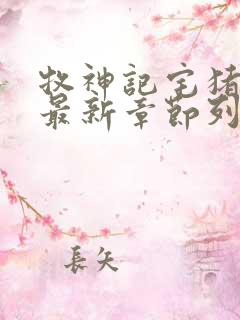 牧神記宅猪
最新章節列
長矢